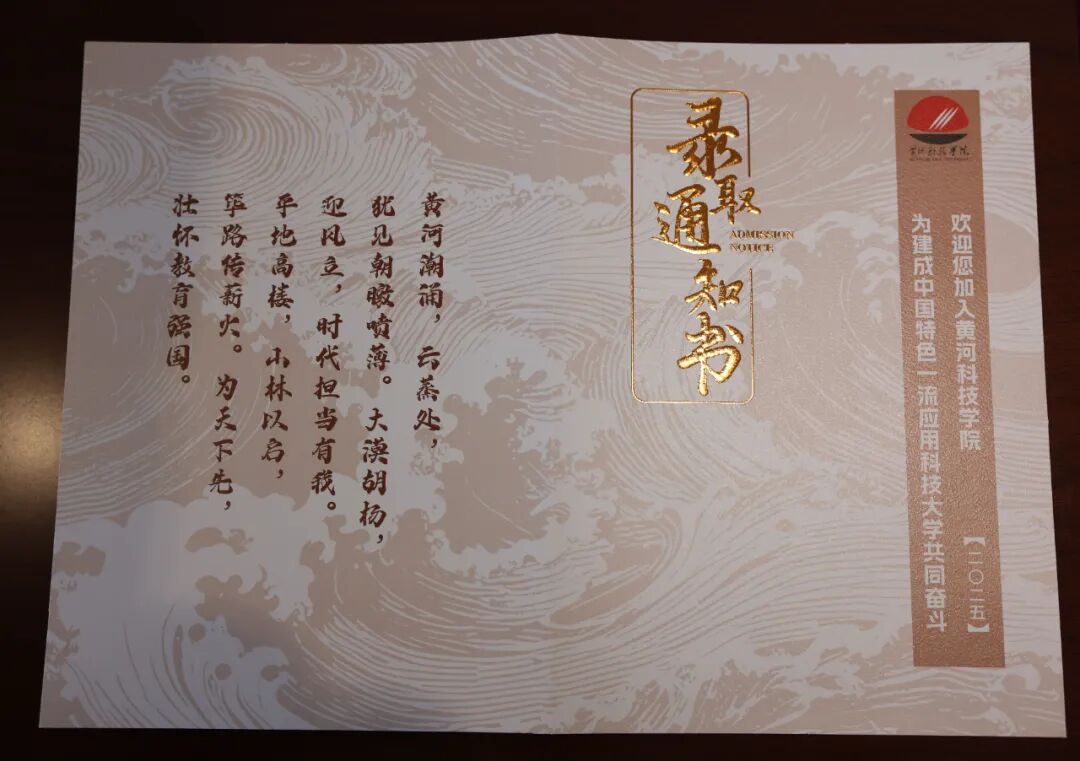 黄河科技学院
欢迎您加入黄河科技学院 【二〇二五】
为建成中国特色一流应用科技大学共同奋斗
录取通知书
ADMISSION
NOTICE
黄河潮涌，云蒸处，
犹见朝暾喷薄。大漠胡杨，
迎风立，时代担当有我。
平地高楼，山林以启，
筚路传薪火。为天下先，
壮怀教育强国。